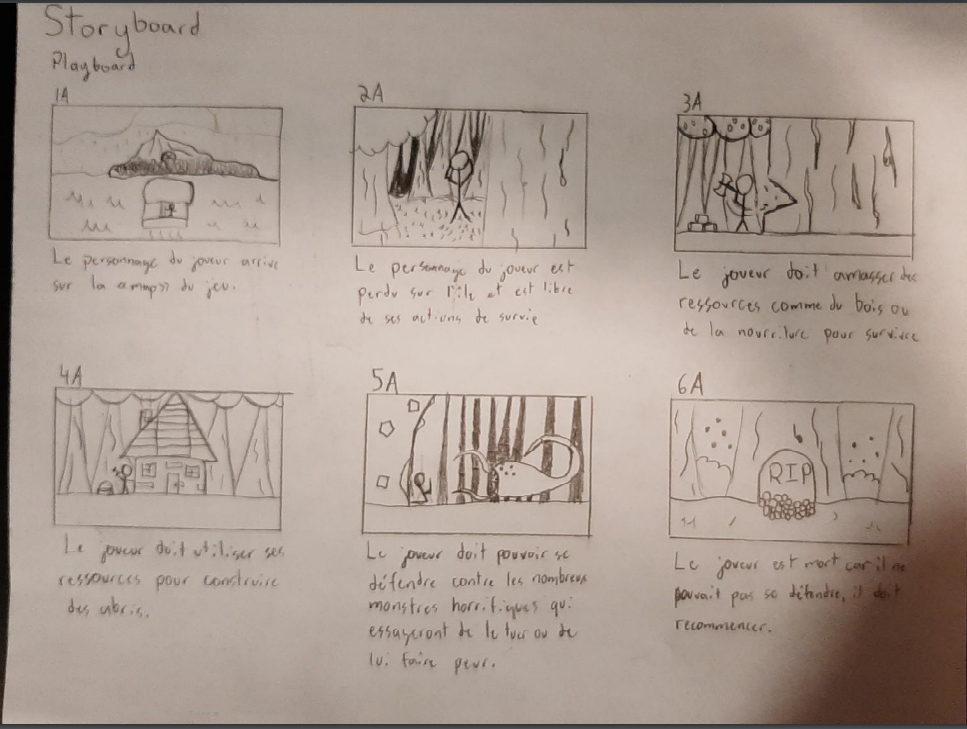 Storyboard
Playboard
1A
Le personnage du joueur arrive
sur la «map» du jeu.
2A
Le personnage du joueur est
perdu sur l'île et est libre
de ses actions de survie
3A
Le joueur doit amasser des
ressources comme du bois ou
de la nourriture pour survivre
4A
Le joueur doit utiliser ses
ressources pour construire
des abris.
5A
Le joueur doit pouvoir se
défendre contre les nombreux
monstres horrifiques qui
essayeront de le tuer ou de
lui faire peur.
6A
RIP
Le joueur est mort car il ne
pouvait pas se défendre, il doit
recommencer.